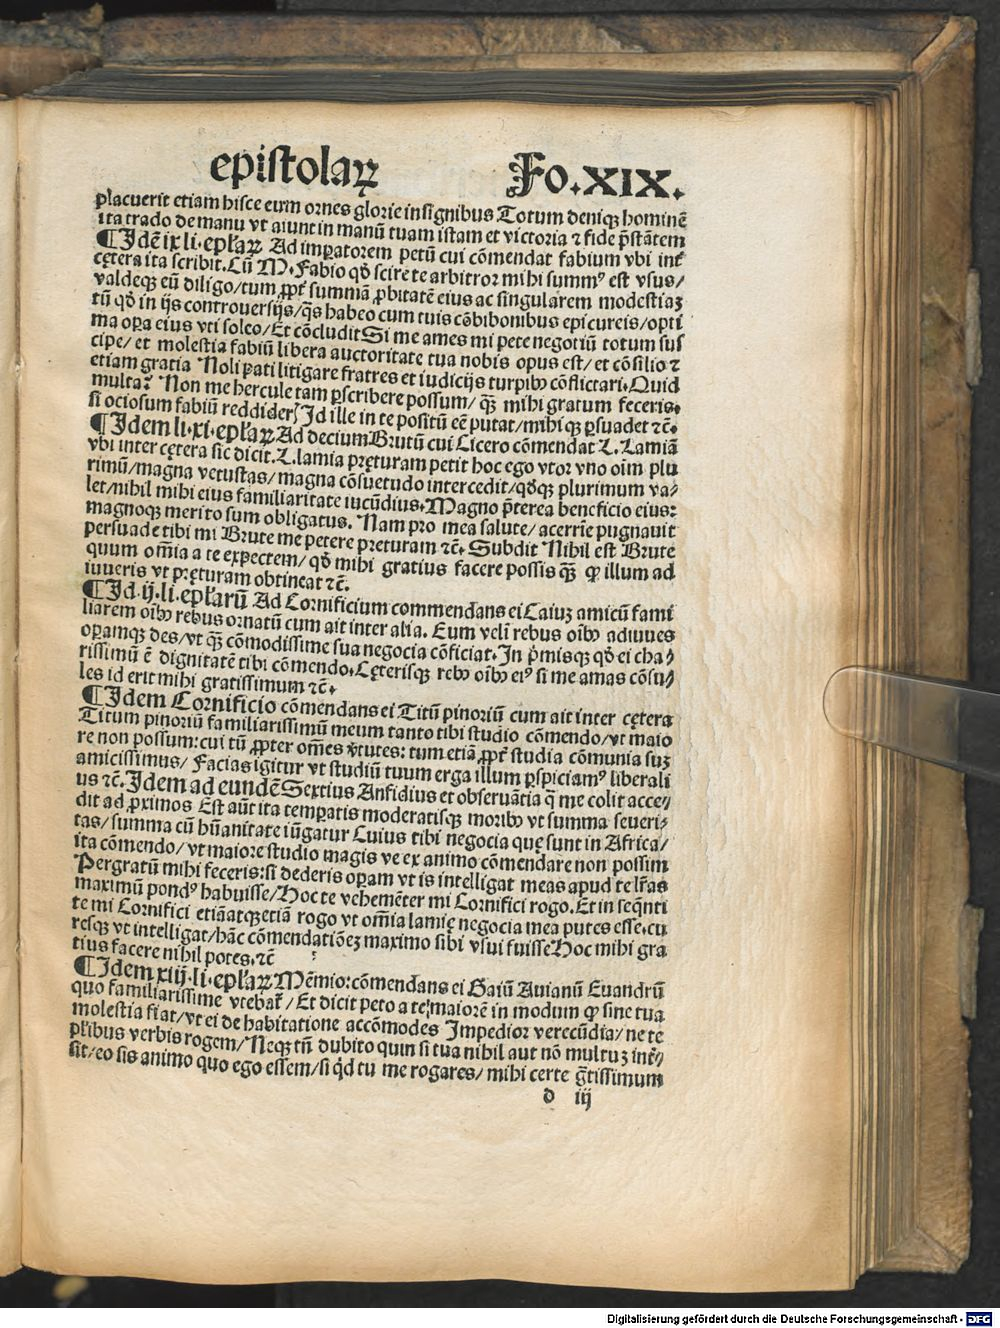 epistolaꝝ Fo.XIX.
placuerit etiam hisce eum ornes glorie insignibus Totum deniqꝫ hominē
ita trado de manu vt aiunt in manū tuam istam et victoria ⁊ fide p̄stātem
¶Jdē ix li. epl̄aꝝ Ad imꝑatorem petū cui cōmendat fabium vbi int̄
cętera ita scribit. Cū M. Fabio qđ scire te arbitror mihi summꝰ est vsus/
valdeqꝫ eū diligo/tum ꝓpt̄ summā ꝓbitatē eius ac singularem modestiaꝫ
tū qđ in ijs controuersijs/q̄s habeo cum tuis cōbibonibus epicureis/opti
ma oꝑa eius vti soleo/Et cōcludit Si me ames mi pete negotiū totum sus
cipe/ et molestia fabiū libera auctoritate tua nobis opus est/ et cōsilio ⁊
etiam gratia Noli ꝑati litigare fratres et iudicijs turpibꝰ cōflictari. Quid
multa? Non me hercule tam ꝑscribere possum/ qꝫ̄ mihi gratum feceris.
si ociosum fabiū reddider̄ Jd ille in te positū eē putat/mihi qꝫ ꝑsuadet ⁊c̄.
¶Jdem li. xi. epl̄aꝝ Ad decium Brutū cui Cicero cōmendat L. Lamiā
vbi inter cętera sic dicit. L. lamia pręturam petit hoc ego vtor vno oīm plu
rimū/magna vetustas/magna cōsuetudo intercedit/qđqꝫ plurimum va⸗
let/nihil mihi eius familiaritate iucūdius. Magno p̄terea beneficio eius:
magnoqꝫ merito sum obligatus. Nam pro mea salute/ acerrīe pugnauit
persuade tibi mi Brute me petere preturam ⁊c̄. Subdit Nihil est Brute
quum om̄ia a te expectem/ qđ mihi gratius facere possis qꝫ̄ ꝙ illum ad
iuueris vt pręturam obtineat ⁊c̄.
¶Jd. ij. li. epl̄arū Ad Cornificium commendans ei Caiuꝫ amicū fami
liarem oībꝰ rebus ornatū cum ait inter alia. Eum velī rebus oībꝰ adiuues
oꝑamqꝫ des/vt qꝫ̄ cōmodissime sua negocia cōficiat. Jn p̄misqꝫ qđ ei cha⸗
rissimū ē dignitatē tibi cōmendo. Cęterisqꝫ rebꝰ oībꝰ eiꝰ si me amas cōsu⸗
les id erit mihi gratissimum ⁊c̄.
¶Jdem Cornificio cōmendans ei Titū pinoriū cum ait inter cętera
Titum pinoriū familiarissimū meum tanto tibi studio cōmendo/vt maio
re non possum: cui tū ꝓpter om̄es v̄tutes: tum etiā ꝓpt̄ studia cōmunia suꝫ
amicissimus/ Facias igitur vt studiū tuum erga illum ꝑspiciamꝰ liberali
us ⁊c̄. Jdem ad eundē Sextius Anfidius et obseruātia q̄ me colit acce⸗
dit ad ꝓximos Est aūt ita temꝑatis moderatisqꝫ moribꝰ vt summa seueri⸗
tas/ summa cū hūanitate iūgatur Cuius tibi negocia quę sunt in Africa/
ita cōmendo/ vt maiore studio magis ve ex animo cōmendare non possim
Pergratū mihi feceris: si dederis oꝑam vt is intelligat meas apud te lr̄as
maximū pondꝰ habuisse/Hoc te vehemēter mi Cornifici rogo. Et in seq̄nti
te mi Cornifici etiāatqꝫetiā rogo vt om̄ia lamię negocia mea putes esse. cu
resqꝫ vt intelligat/hāc cōmendatiōeꝫ maximo sibi vsui fuisse Hoc mihi gra
tius facere nihil potes. ⁊c̄
¶Jdem xiij. li. epl̄aꝝ Mēmio: cōmendans ei Gaiū Auianū Euandrū
quo familiarissime vtebat᷑/ Et dicit peto a te: maiorē in modum ꝙ sine tua
molestia fiat/vt ei de habitatione accōmodes Jmpedior verecūdia/ ne te
pl̄ibus verbis rogem/ Neqꝫ tn̄ dubito quin si tua nihil aut nō multuꝫ int̄⸗
sit/eo sis animo quo ego essem/si qd̄ tu me rogares/ mihi certe gr̄tissimum
d iij
Digitalisierung gefördert durch die Deutsche Forschungsgemeinschaft - DFG